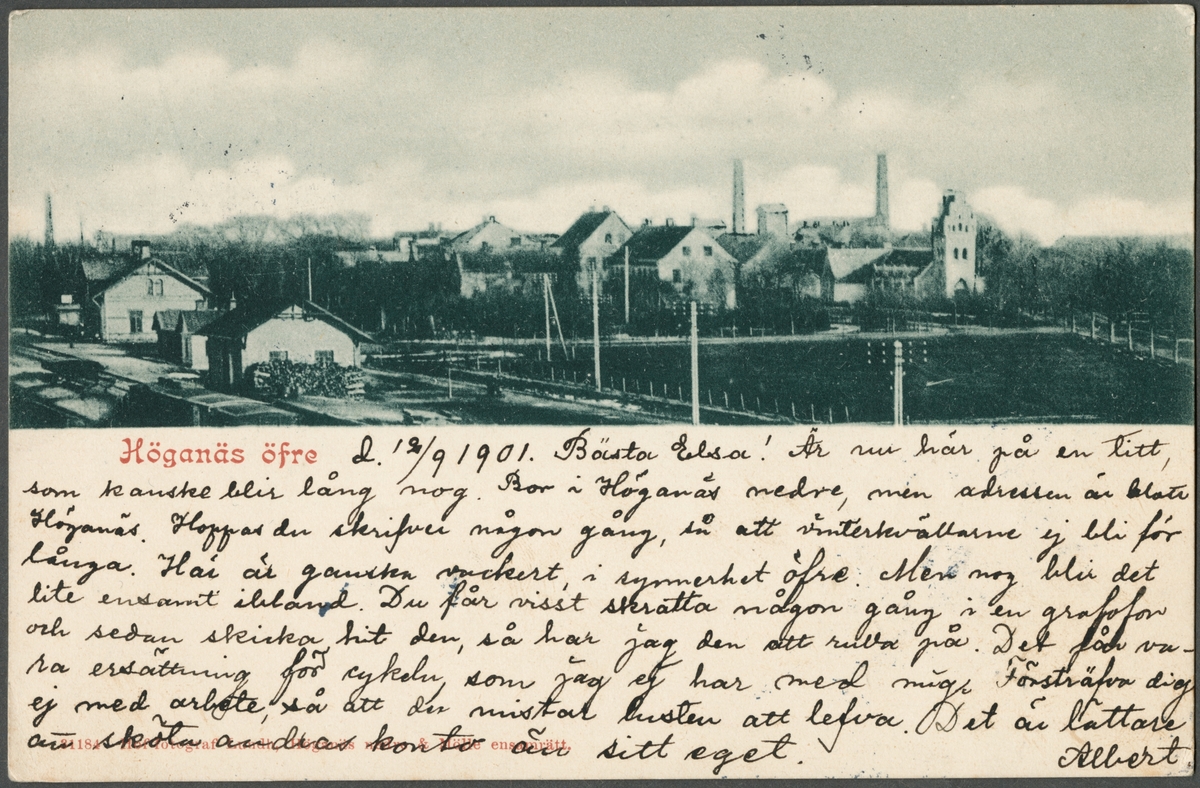 Höganäs öfre d. 12/9 1901. Bästa Elsa! Är nu här på en titt,
som kanske blir lång nog. Bor i Höganäs nedre, men adressen är blott
Höganäs. Hoppas du skrifver någon gång, så att vinterkvällarne ej bli för
långa. Här är ganska vackert, i synnerhet öfre. Men nog blir det
lite ensamt ibland. Du får visst skratta någon gång i en grafofon
och sedan skicka hit den, så har jag den att rulla på. Det får va-
ra ersättning för cykeln, som jag ej har med mig. Försträfva dig
ej med arbete, så att du mistar lusten att lefva. Det är lättare
att sköta andras kontor än sitt eget.
Albert.
31184 Hoffotograf Lundh, Höganäs & Mölle ensamrätt.